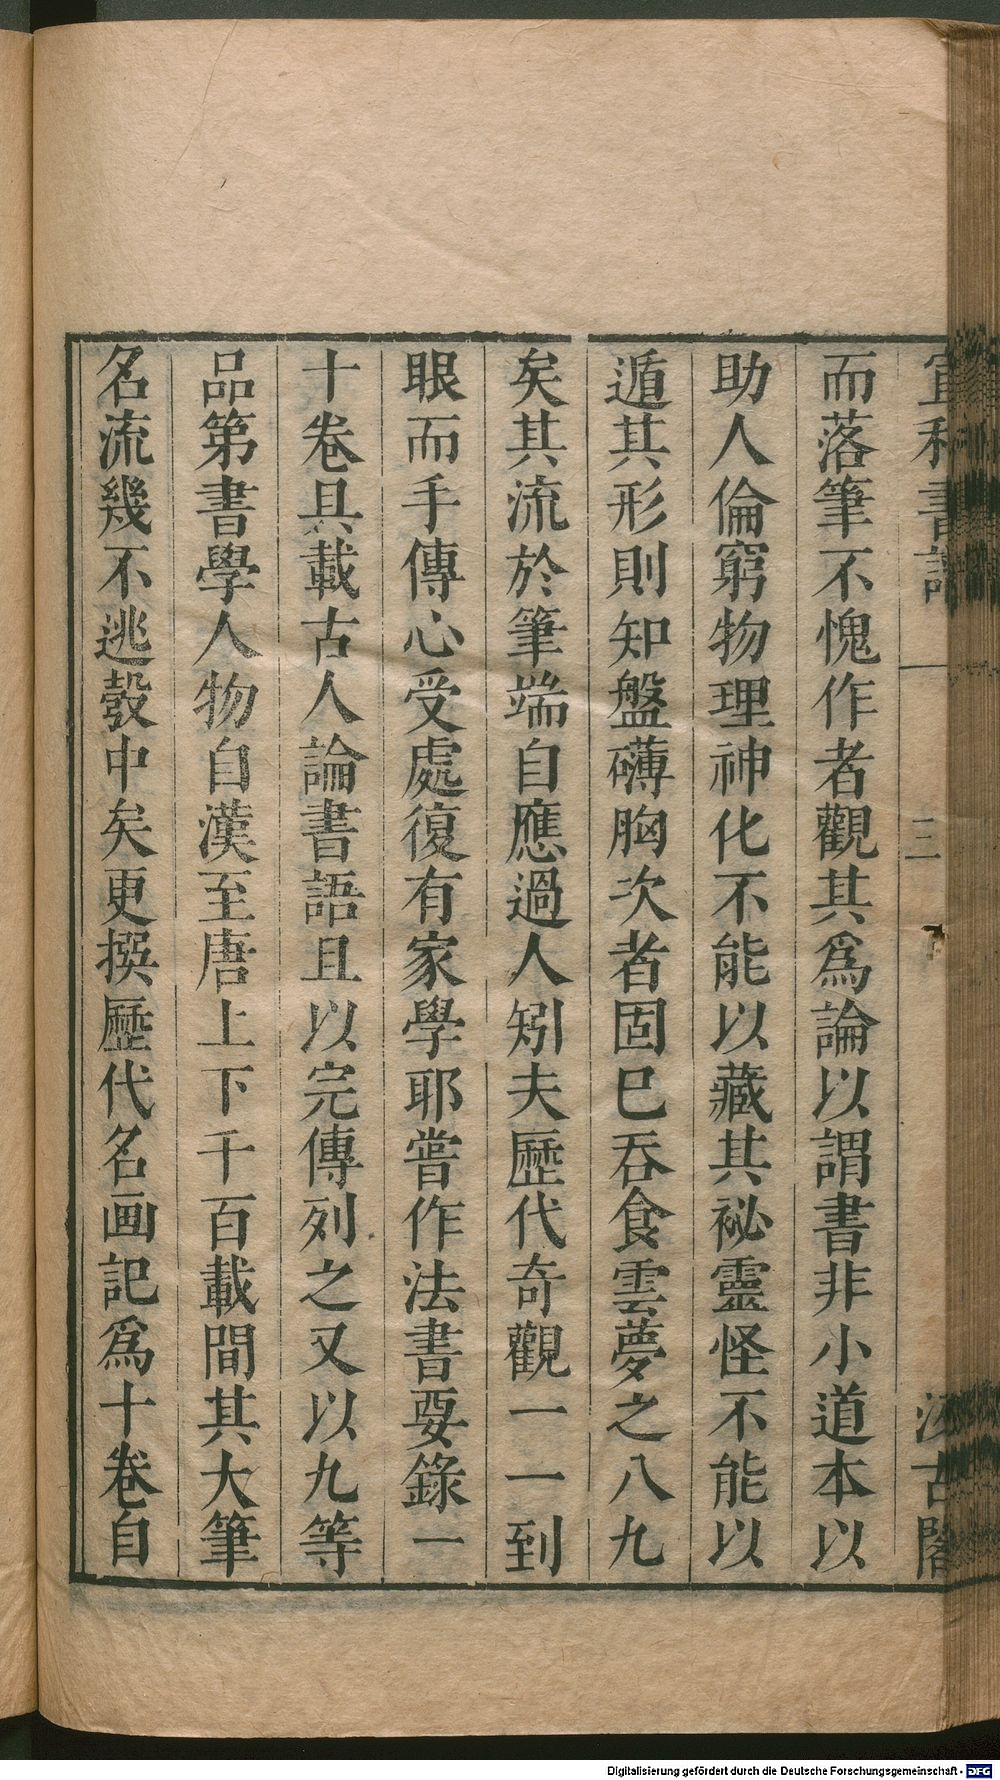 宣和書譜 三 汲古閣
而落筆不愧作者觀其爲論以謂書非小道本以
助人倫窮物理神化不能以藏其祕靈怪不能以
遁其形則知盤礴胸次者固巳吞食雲夢之八九
矣其流於筆端自應過人矧夫歷代奇觀一一到
眼而手傳心受處復有家學耶嘗作法書要錄一
十卷具載古人論書語且以完傳列之又以九等
品第書學人物自漢至唐上下千百載間其大筆
名流幾不逃彀中矣更撰歷代名画記爲十卷自
Digitalisierung gefördert durch die Deutsche Forschungsgemeinschaft - DFG